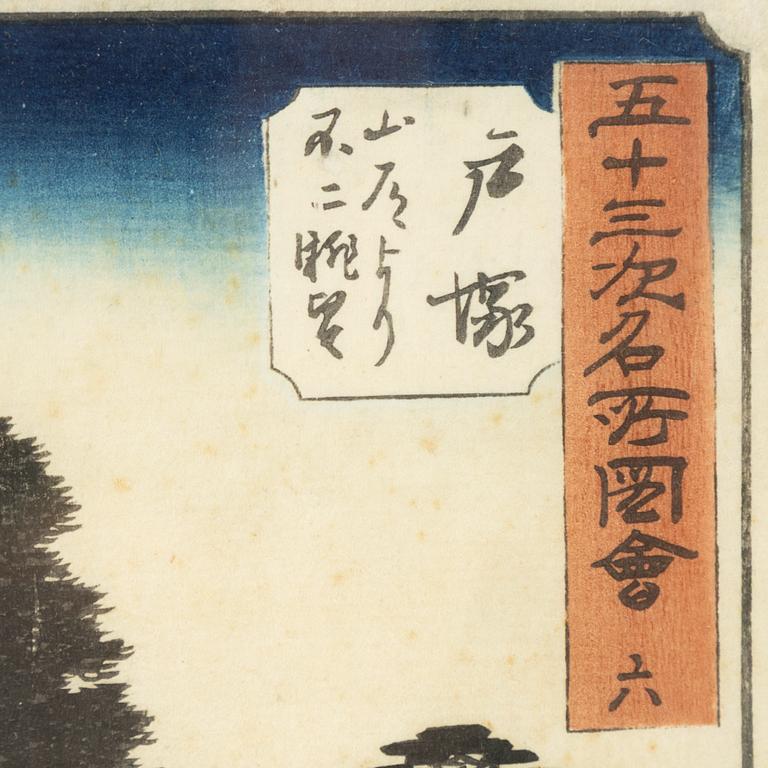 五十三次名所圖會 六
戸塚
山道より
不二眺望